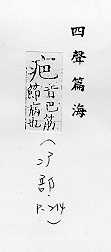 四聲篇海
疤
音巴筋
節病也
(疒部
P.214)